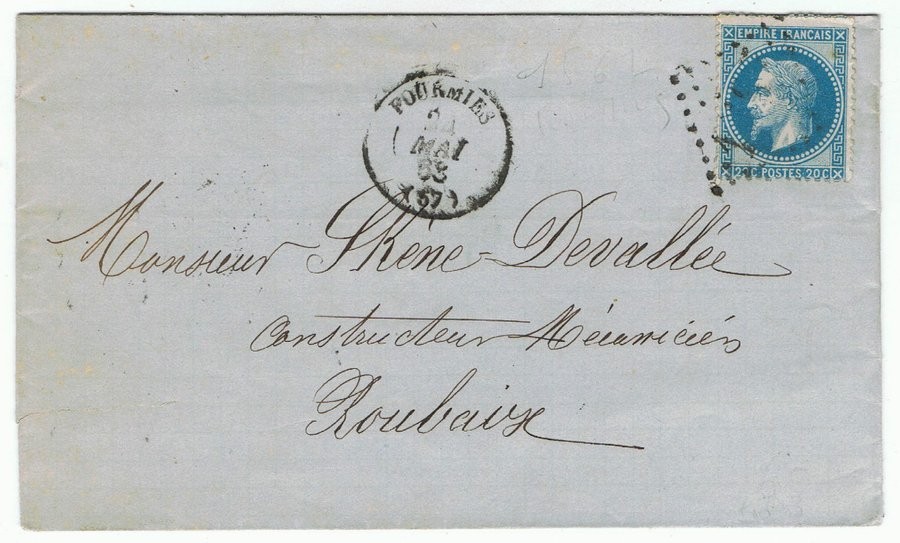 EMPIRE FRANÇAIS
20C POSTES 20C
FOURMIES
24
MAI
68
(57)
Monsieur Skène-Devallée
Constructeur Mécanicien
Roubaix